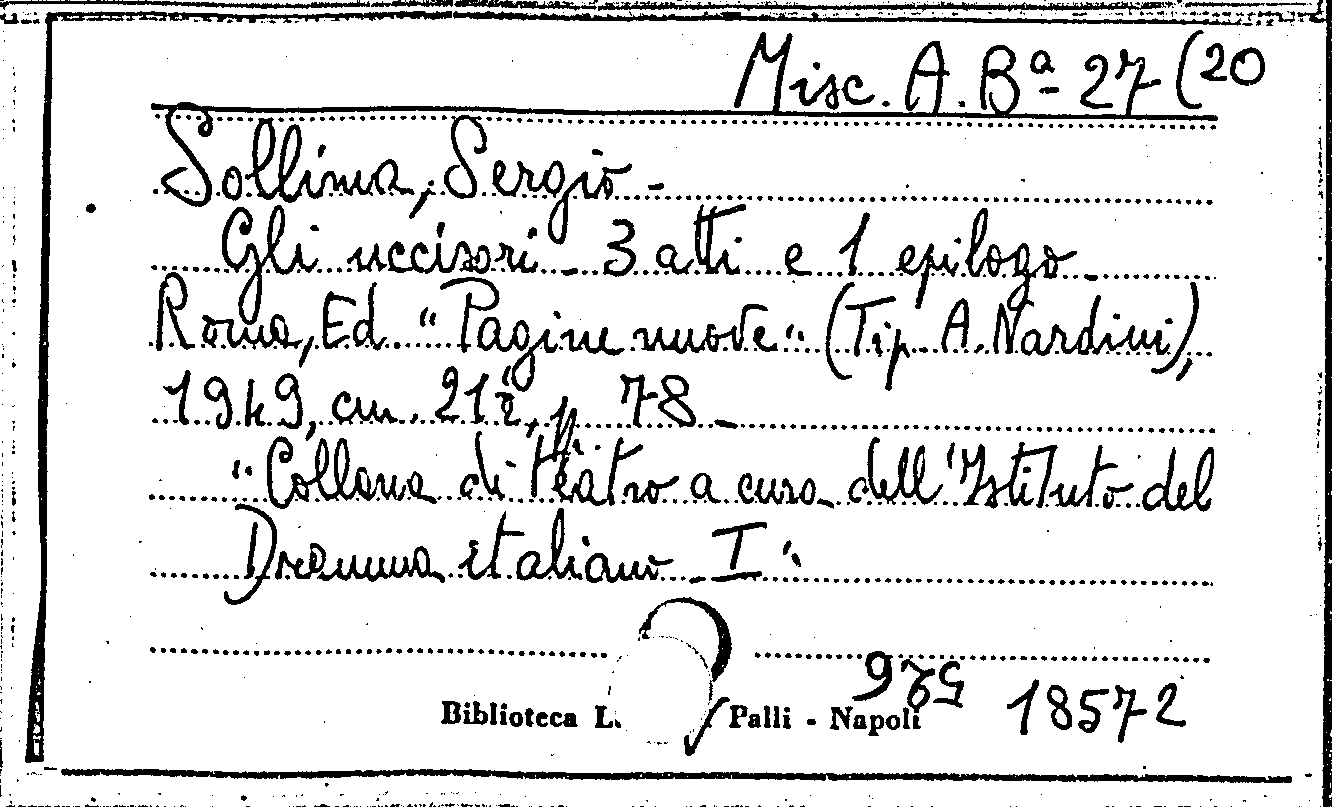 Misc. A. Bª 27 (20
Sollima, Sergio -
Gli uccisori - 3 atti e 1 epilogo -
Roma, Ed. "Pagine nuove" (Tip. A. Nardini),
1949, cm. 21½, p. 78 -
"Collana di teatro a cura dell'Istituto del
Dramma italiano - I"
18572
Biblioteca L. Palli - Napoli